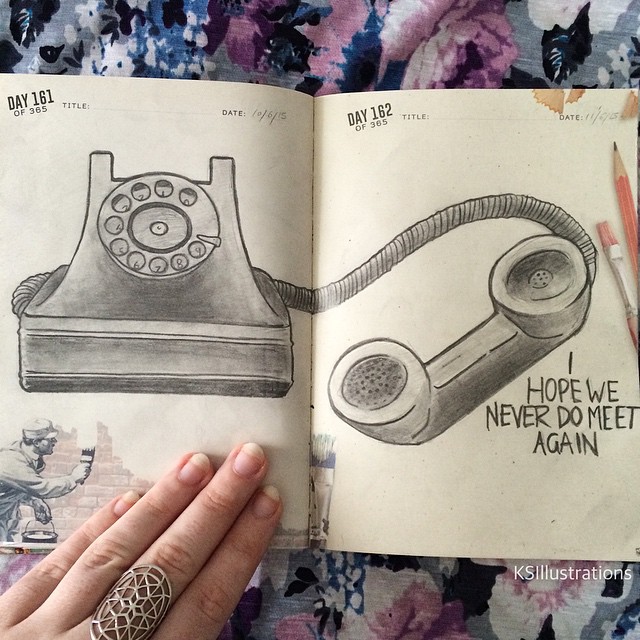 DAY 161
OF 365
TITLE:
DATE:
DAY 162
OF 365
TITLE:
DATE:
I
HOPE WE
NEVER DO MEET
AGAIN
KSIllustrations